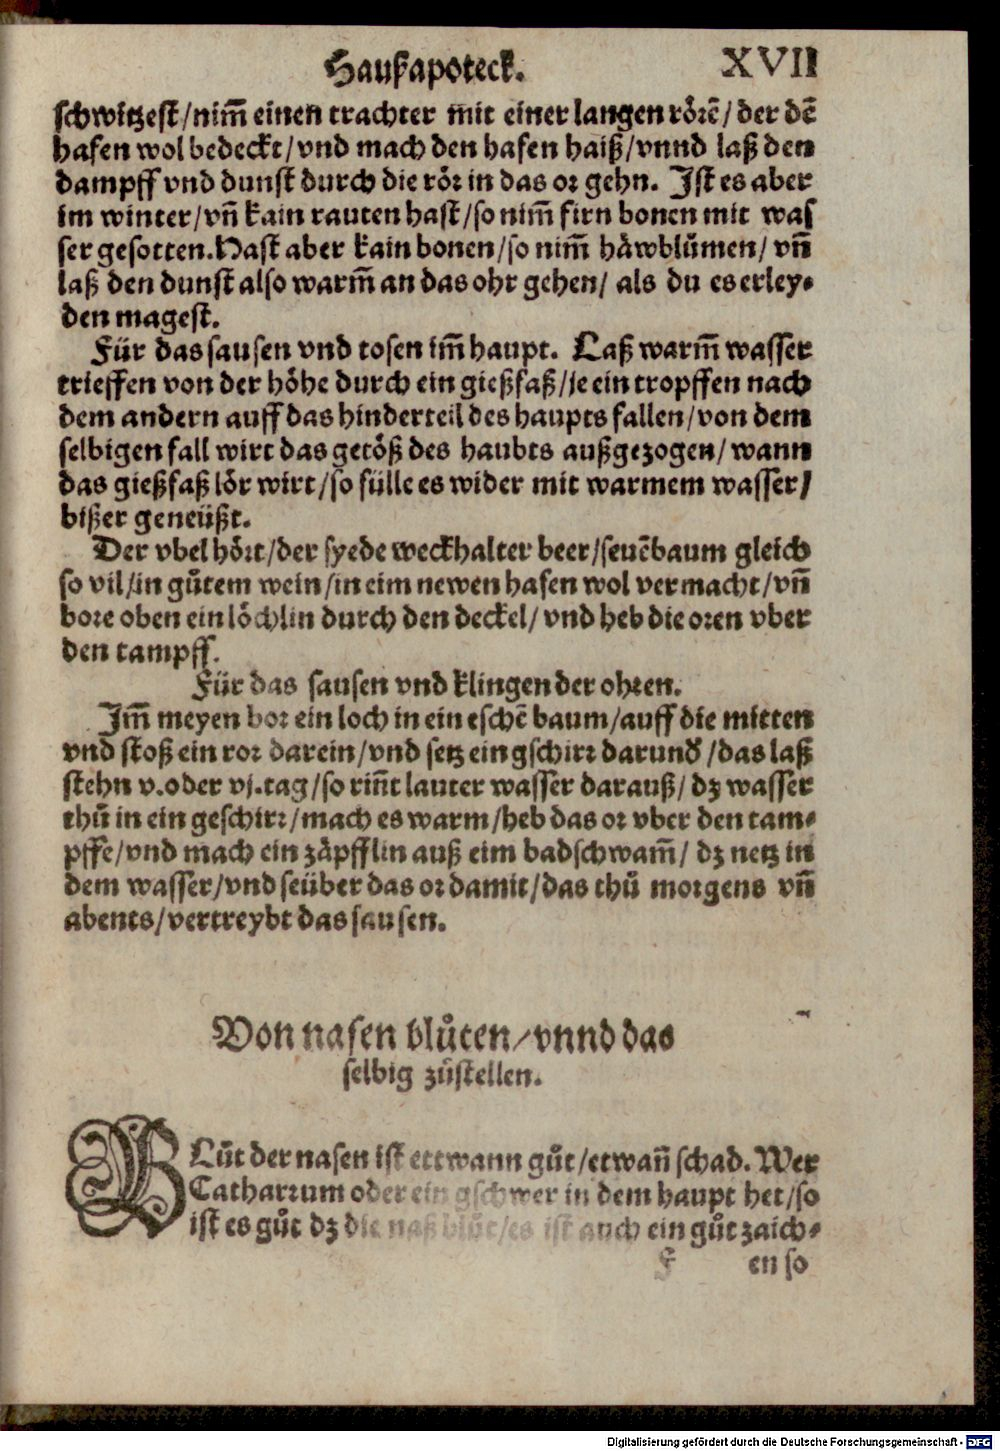 Haußapoteck. XVII
schwitzest/nim̃ einen trachter mit einer langen rörẽ/ der dẽ
hafen wol bedeckt/vnd mach den hafen haiß/vnnd laß den
dampff vnd dunst durch die rör in das or gehn. Ist es aber
im winter/vñ kain rauten hast/so nim̃ firn bonen mit was
ser gesotten. Hast aber kain bonen/so nim̃ häwblůmen/ vñ
laß den dunst also warm̃ an das ohr gehen/ als du es erley-
den magest.
Für das sausen vnd tosen im̃ haupt. Laß warm̃ wasser
trieffen von der höhe durch ein gießfaß/je ein tropffen nach
dem andern auff das hinderteil des haupts fallen/von dem
selbigen fall wirt das getöß des haubts außgezogen/ wann
das gießfaß lör wirt/so fülle es wider mit warmem wasser/
bißer geneüßt.
Der vbel hört/der syede weckhalter beer/seuẽbaum gleich
so vil/in gůtem wein/in eim newen hafen wol vermacht/vñ
bore oben ein löchlin durch den deckel/ vnd heb die oren vber
den tampff.
Für das sausen vnd klingen der ohren.
Im̃ meyen bor ein loch in ein eschẽ baum/auff die mitten
vnd stoß ein ror darein/vnd setz ein gschirr darund̕/das laß
stehn v.oder vj.tag/so riñt lauter wasser darauß/ dz wasser
thů in ein geschirr/mach es warm/heb das or vber den tam-
pffe/vnd mach ein zäpfflin auß eim badschwam̃/ dz netz in
dem wasser/vnd seüber das or damit/das thů morgens vñ
abents/vertreybt das sausen.
Von nasen blůten/vnnd das
selbig zůstellen.
BLůt der nasen ist ettwann gůt/etwañ schad. Wer
Catharrum oder ein gschwer in dem haupt het/so
ist es gůt dz die naß blůt/es ist auch ein gůt zaich-
F en so
Digitalisierung gefördert durch die Deutsche Forschungsgemeinschaft - DFG